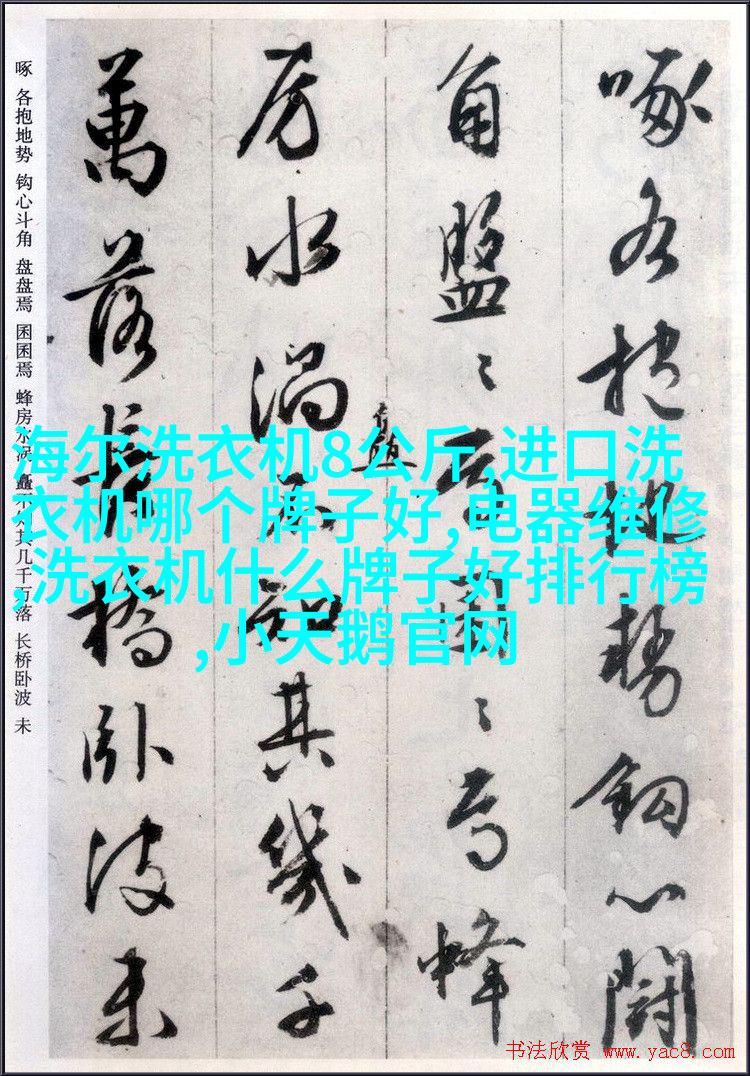 啄各抱地勢鉤心鬪
角盤〻焉囷〻焉蜂
房水渦矗不知其幾千
萬落長橋臥波未
啄 各抱地势 钩心斗角 盘盘焉 囷囷焉 蜂房水涡 矗不知其几千万落 长桥卧波 未
海尔洗衣机8公斤,进口洗
衣机哪个牌子好,电器维修
,洗衣机什么牌子好排行榜
,小天鹅官网
书法欣赏 www.yac8.com